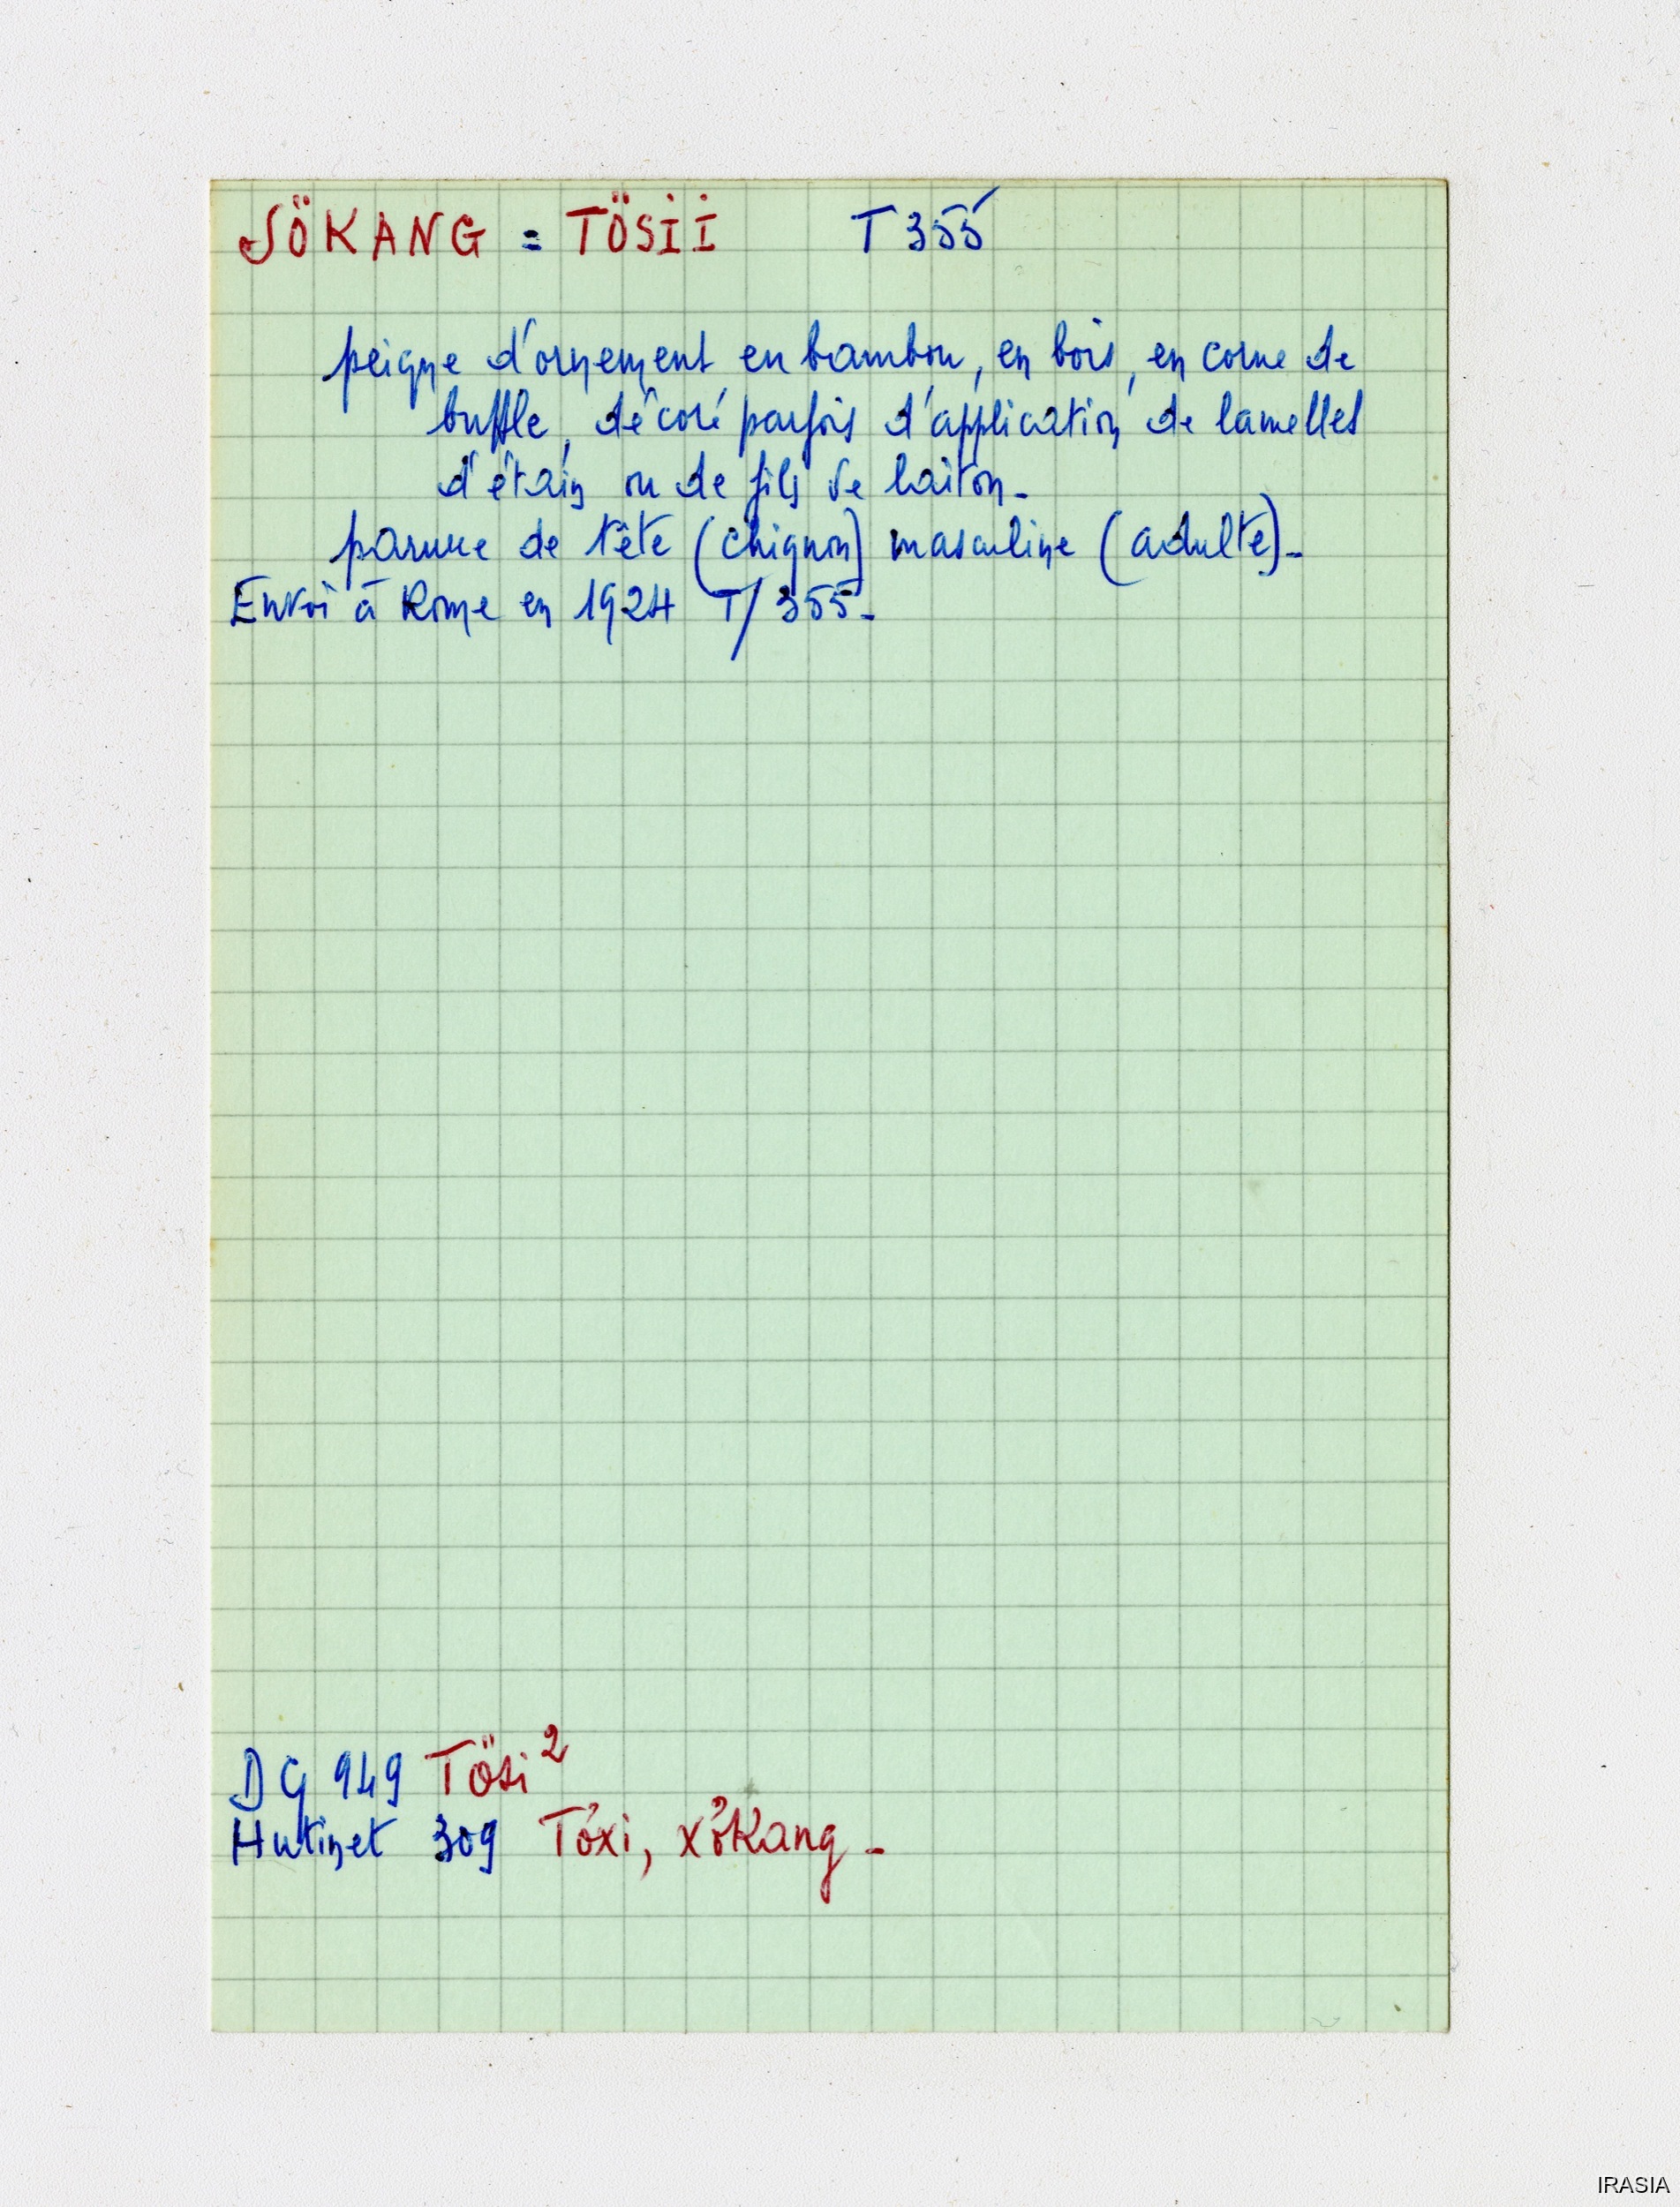 SÖKANG = TÖSII T 355
peigne d'ornement en bambou, en bois, en corne de
buffle, décoré parfois d'application de lamelles
d'étain ou de fils de laiton -
parure de tête (chignon) masculine (adulte) -
Envoi à Rome en 1924 T/355 -
DG 949 Tösi²
Hutinet 309 Tơxi, xởKang -
IRASIA